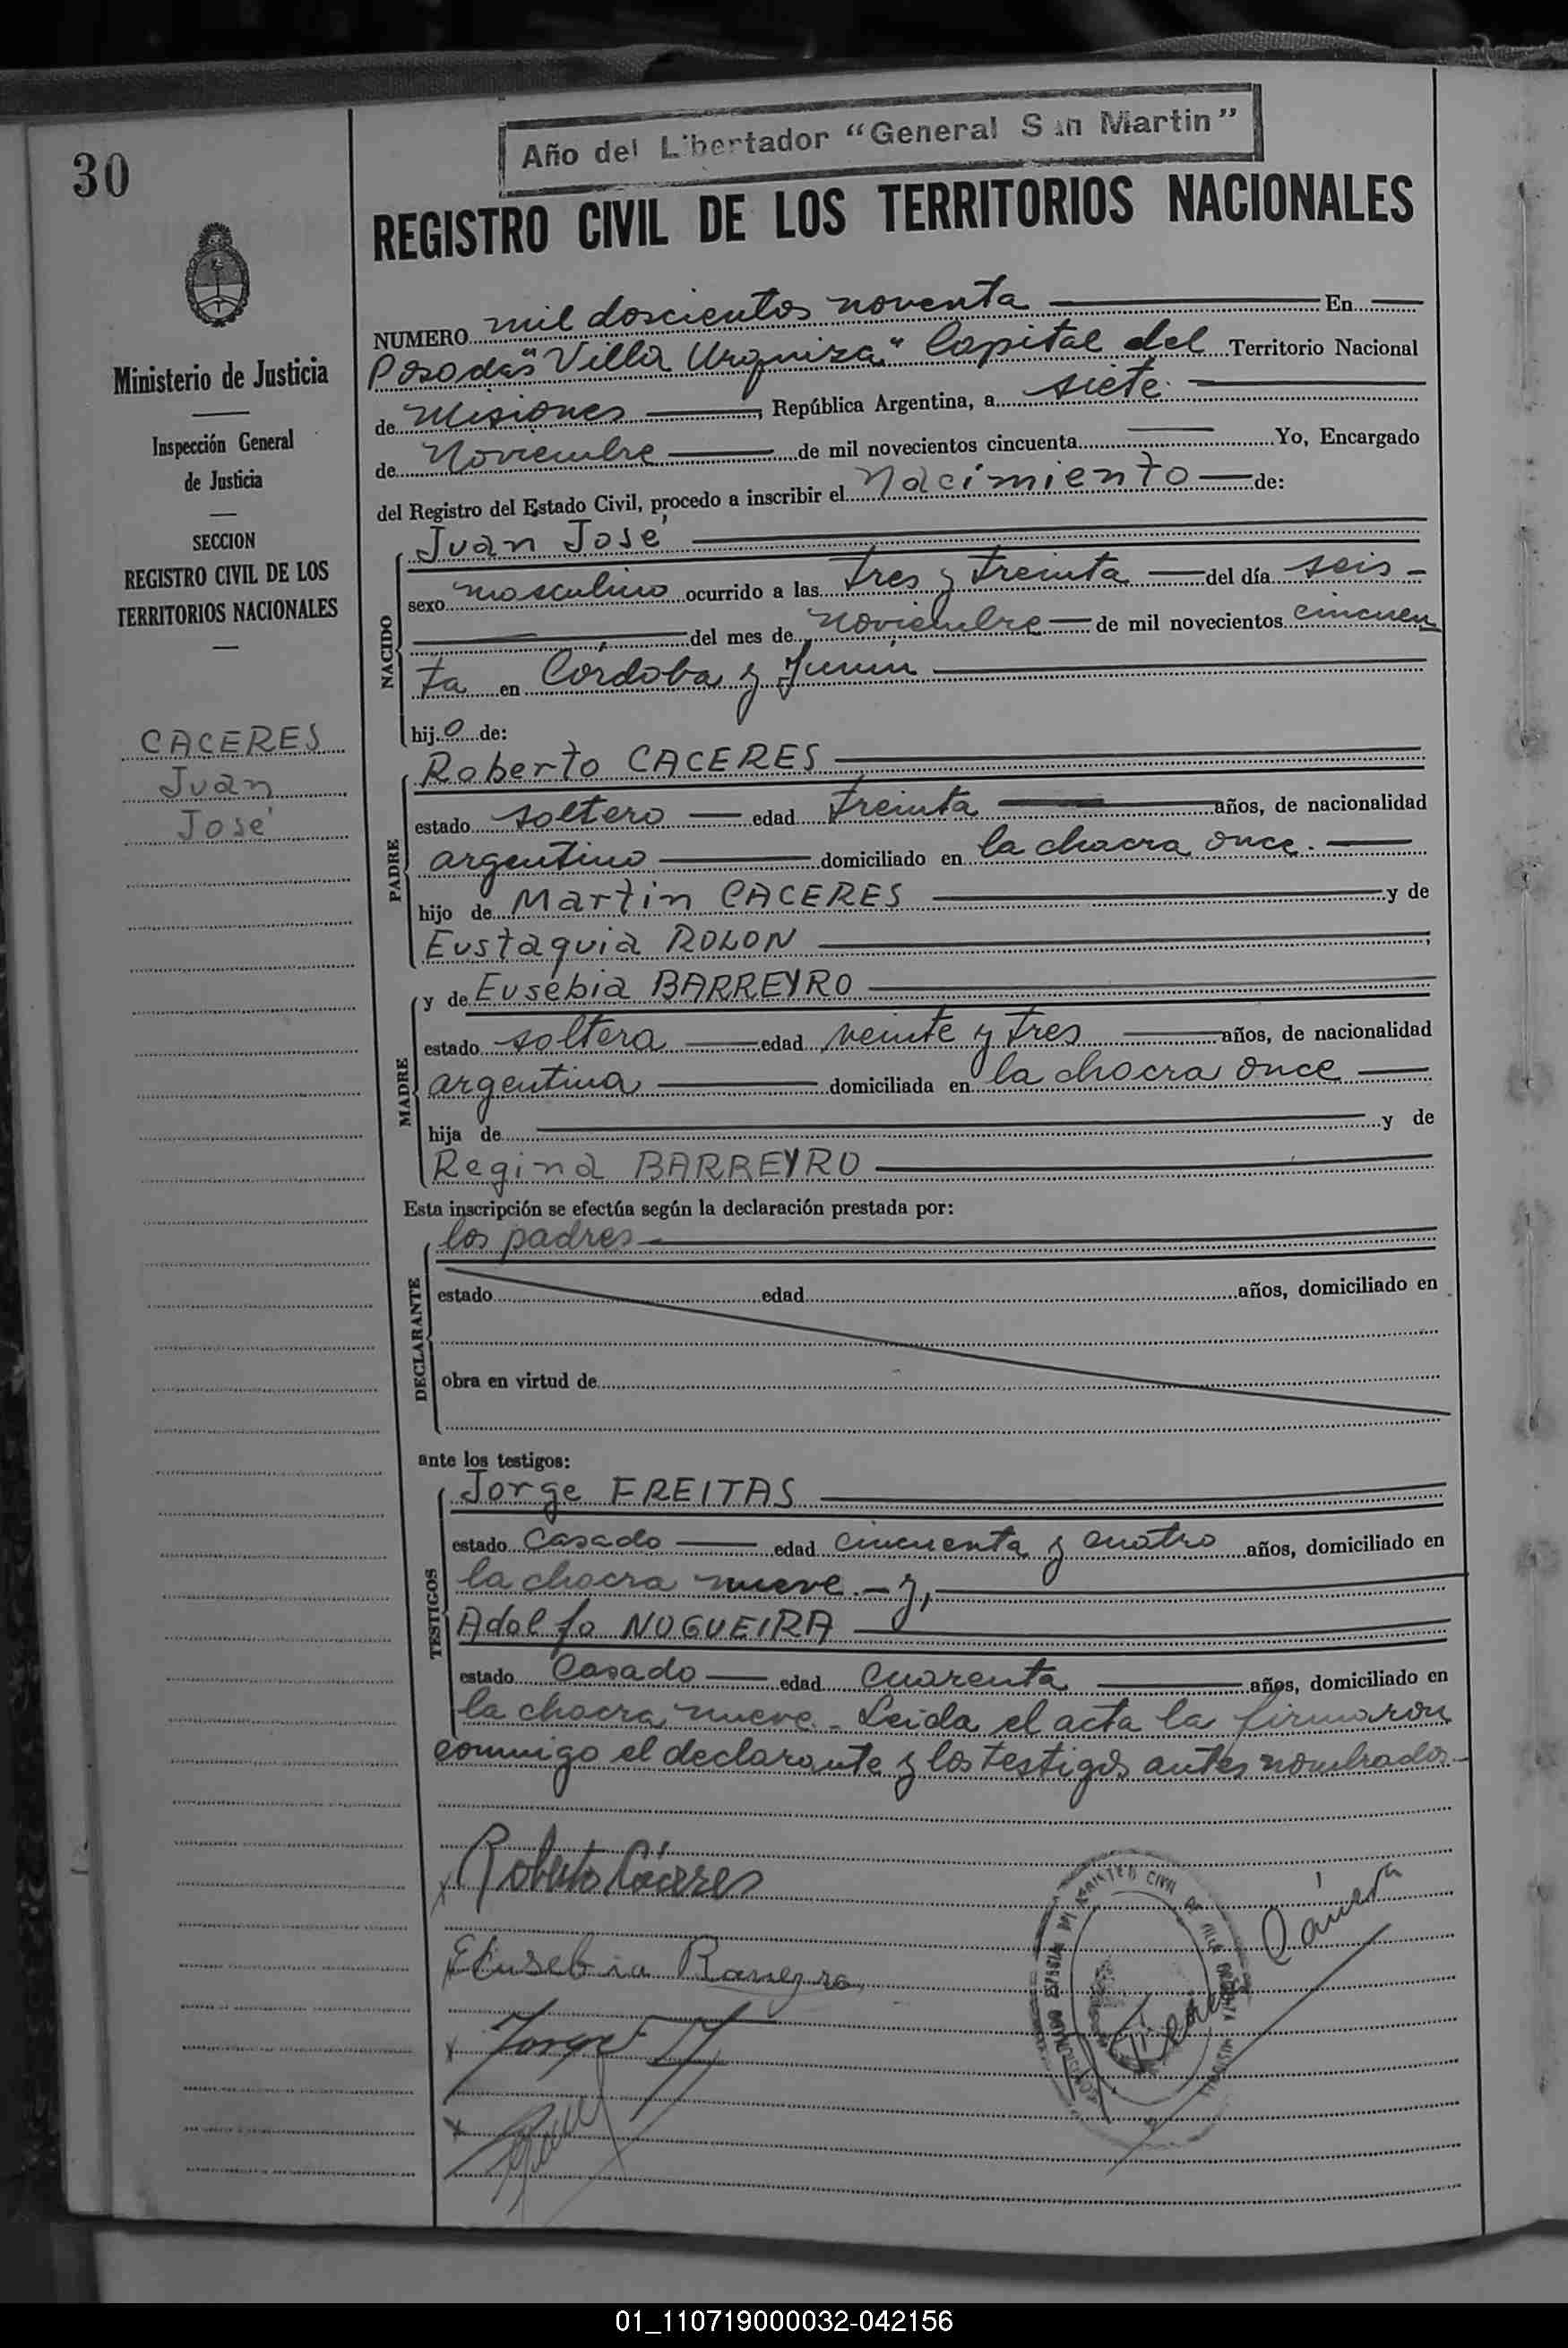 Año del Libertador “General San Martin”
30
REGISTRO CIVIL DE LOS TERRITORIOS NACIONALES
Ministerio de Justicia
Inspección General
de Justicia
SECCION
REGISTRO CIVIL DE LOS
TERRITORIOS NACIONALES
CACERES
Juan
José
NUMERO mil doscientos noventa En
Posadas "Villa Urquiza" Capital del Territorio Nacional
de Misiones, República Argentina, a siete.
de Noviembre de mil novecientos cincuenta Yo, Encargado
del Registro del Estado Civil, procedo a inscribir el Nacimiento de:
NACIDO
Juan José
sexo masculino ocurrido a las tres y treinta del día seis -
del mes de noviembre de mil novecientos cincuen
ta en Córdoba y Junín
hijo de:
PADRE
Roberto CACERES
estado soltero edad treinta años, de nacionalidad
argentino domiciliado en la chacra once.
hijo de Martin CACERES y de
Eustaquia ROLON ;
MADRE
y de Eusebia BARREYRO
estado soltera edad veinte y tres años, de nacionalidad
argentina domiciliada en la chacra once
hija de y de
Regina BARREYRO
Esta inscripción se efectúa según la declaración prestada por:
DECLARANTE
los padres
estado edad años, domiciliado en
obra en virtud de
ante los testigos:
TESTIGOS
Jorge FREITAS
estado Casado edad cincuenta y cuatro años, domiciliado en
la chacra nueve. - y,
Adolfo NOGUEIRA
estado Casado edad cuarenta años, domiciliado en
la chacra nueve. - Leida el acta la firmaron
conmigo el declarante y los testigos antes nombrados. -
Roberto Cáceres
Eusebia Barreyro
Jorge
01_110719000032-042156